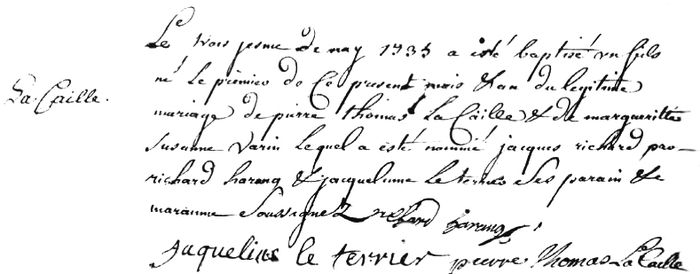 Le trois jesme de may 1735 a esté baptisé vn fils
La Caille.
né Le premier do Ce present mois & an du legitime
mariage de pierre thomas La Caille & de margueritte
Susanne Varin Lequel a esté nommé jacques richard pro-
richard harang & jacqueline Le terrier Ses parain &
maraine Soussignez richard harang
Jaquelins le terrier pierre Thomas La Caille